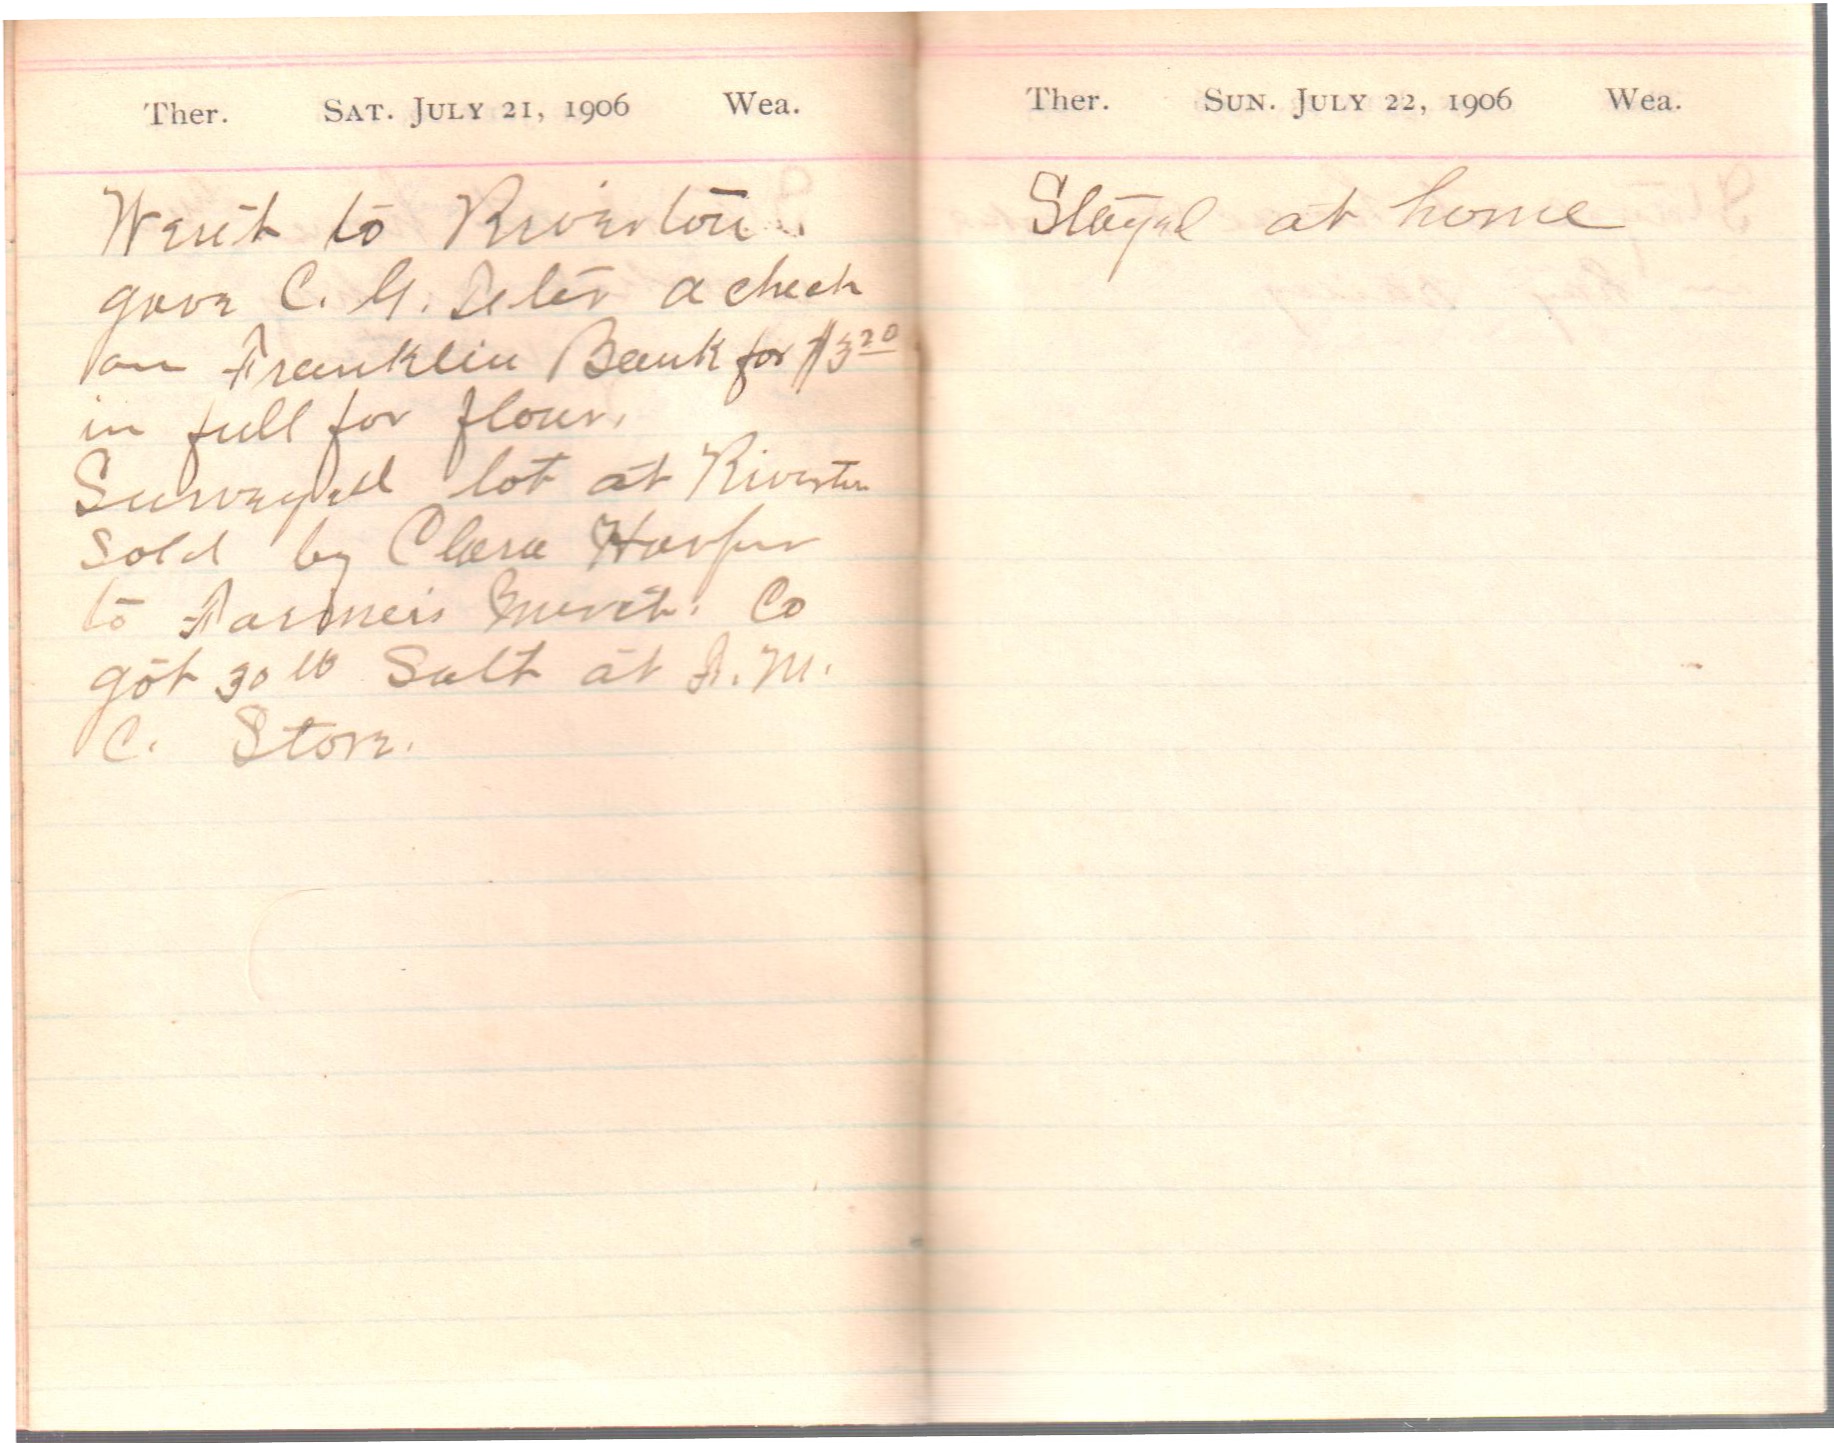 Ther. Sat. July 21, 1906 Wea.
Went to Riverton
gave C. G. a check
on Franklin Bank for $3 20
in full for flour.
Surveyed lot at Riverton
sold by Clara Harper
to Farmers Merct. Co
got 30 lb Salt at F. M.
C. Store.
Ther. Sun. July 22, 1906 Wea.
Stayed at home